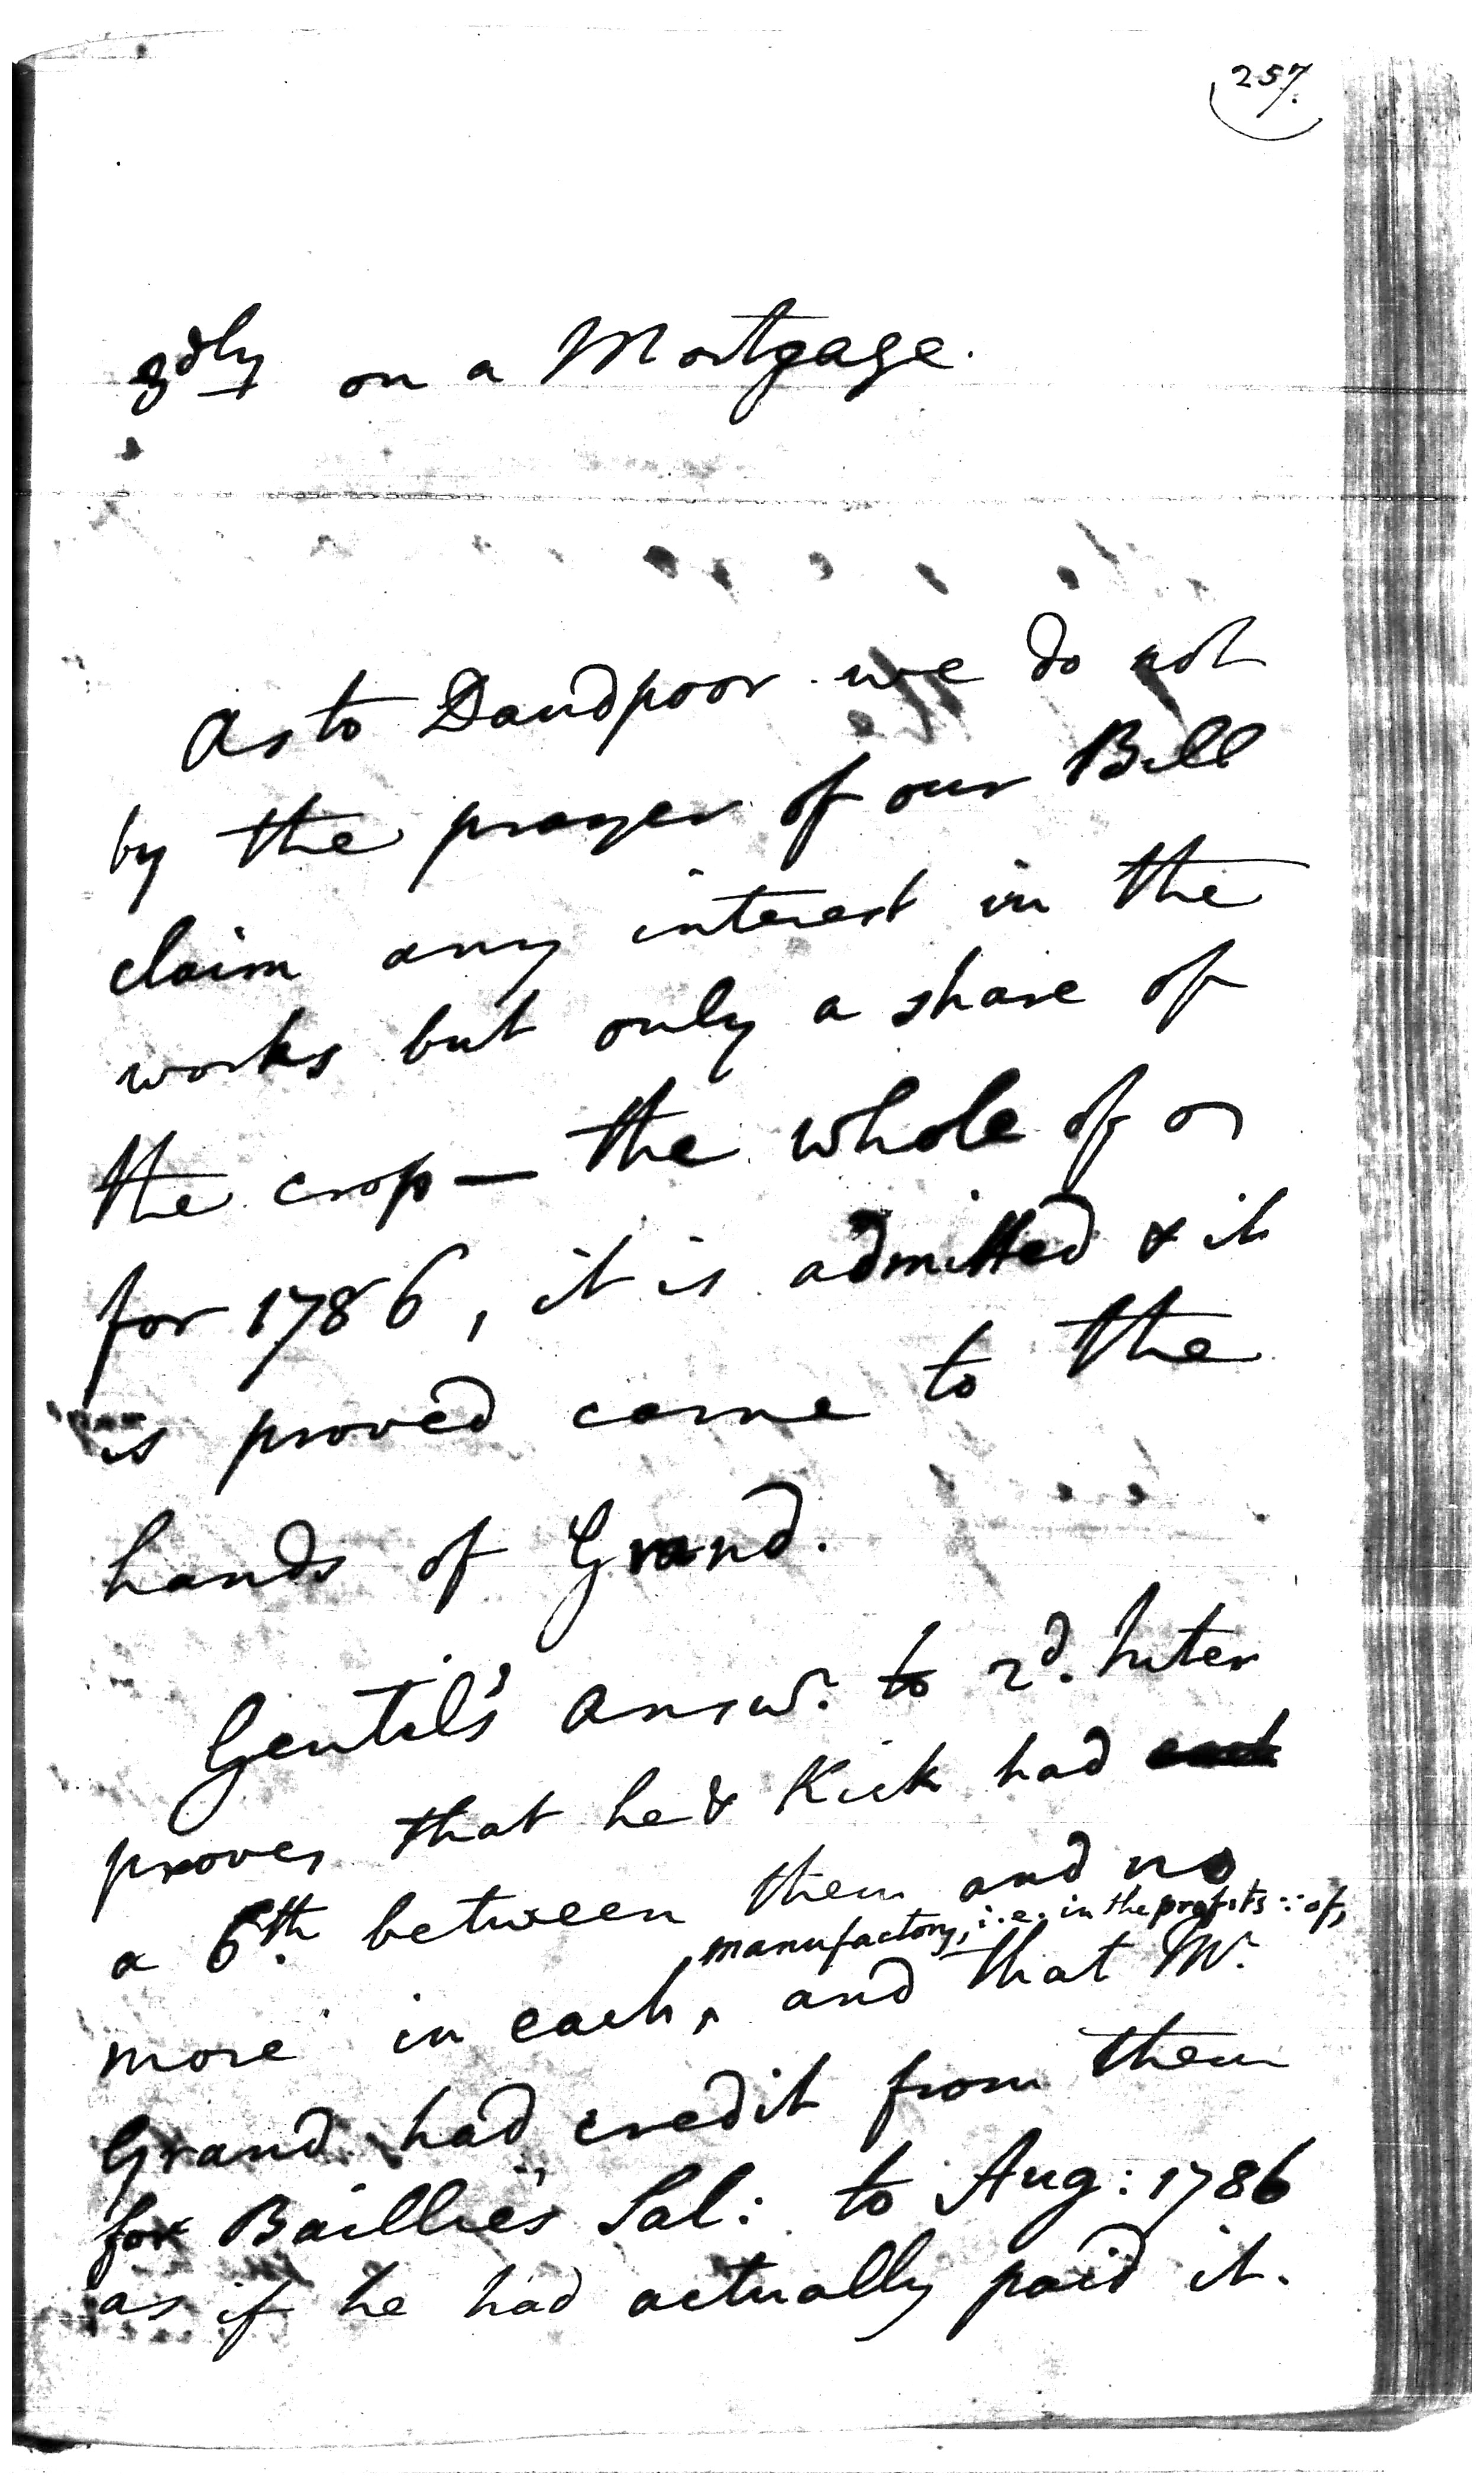 257.
3dly on a Mortgage.
As to Daudpoor we do not
by the prayer of our Bill
claim any interest in the
works but only a share of
the crop — the whole of
for 1786, it is admitted & it
is proved came to the
hands of Grand.
Gentil's answr. to 2d. Inter
proves that he & Kick had
a 6th. between them and no
manufactory, i.e. in the profits of,
more in each, and that Mr.
Grand had credit from them
for Baillie's Sal: to Aug: 1786
as if he had actually paid it.